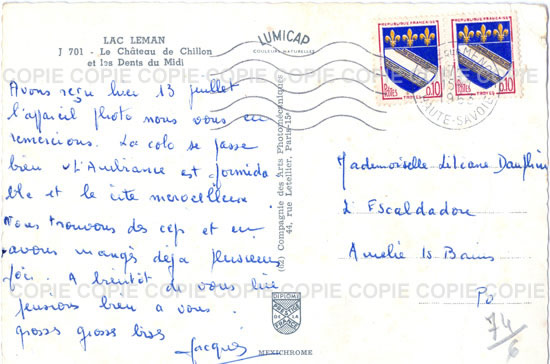 LAC LEMAN
J 701 - Le Château de Chillon
et les Dents du Midi
LUMICAP
COULEURS NATURELLES
REPUBLIQUE FRANÇAISE
REPUBLIQUE FRANÇAISE
POSTES 0,10
POSTES 0,10
TROYES
TROYES
HAUTE-SAVOIE
COPIE COPIE COPIE COPIE COPIE COPIE COPIE
Avons reçu hier 13 juillet
l'appareil photo nous vous en
remercions. La colo se passe
bien L'Ambiance est formida
ble et le site merveilleux
Nous trouvons des cep et en
avons mangés déja plusieurs
fois. A bientôt de vous lire
pensons bien a vous.
grosses grosses bises
Jacques
(62) Compagnie des Arts Photomécaniques
44, rue Letellier, Paris-15e
Mademoiselle Liliane Dauphin
L'Escaldadou
Amelie ls Bains
Po
74
6
DIPLOME
PRESTIGE
DE LA
FRANCE
MEXICHROME